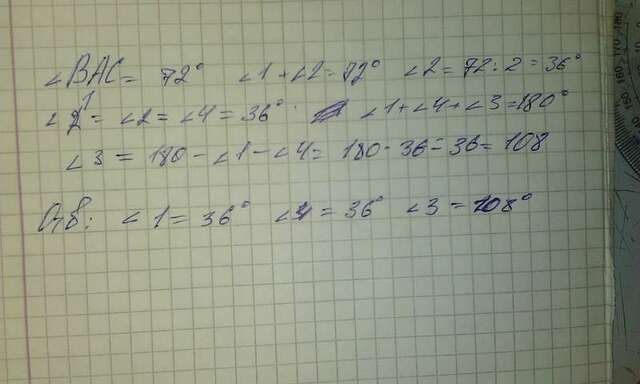 ∠BAC = 72° ∠1 + ∠2 = 72° ∠2 = 72 : 2 = 36°
∠1 = ∠2 = ∠4 = 36° ∠1 + ∠4 + ∠3 = 180°
∠3 = 180 - ∠1 - ∠4 = 180 - 36 - 36 = 108
Отв: ∠1 = 36° ∠4 = 36° ∠3 = 108°